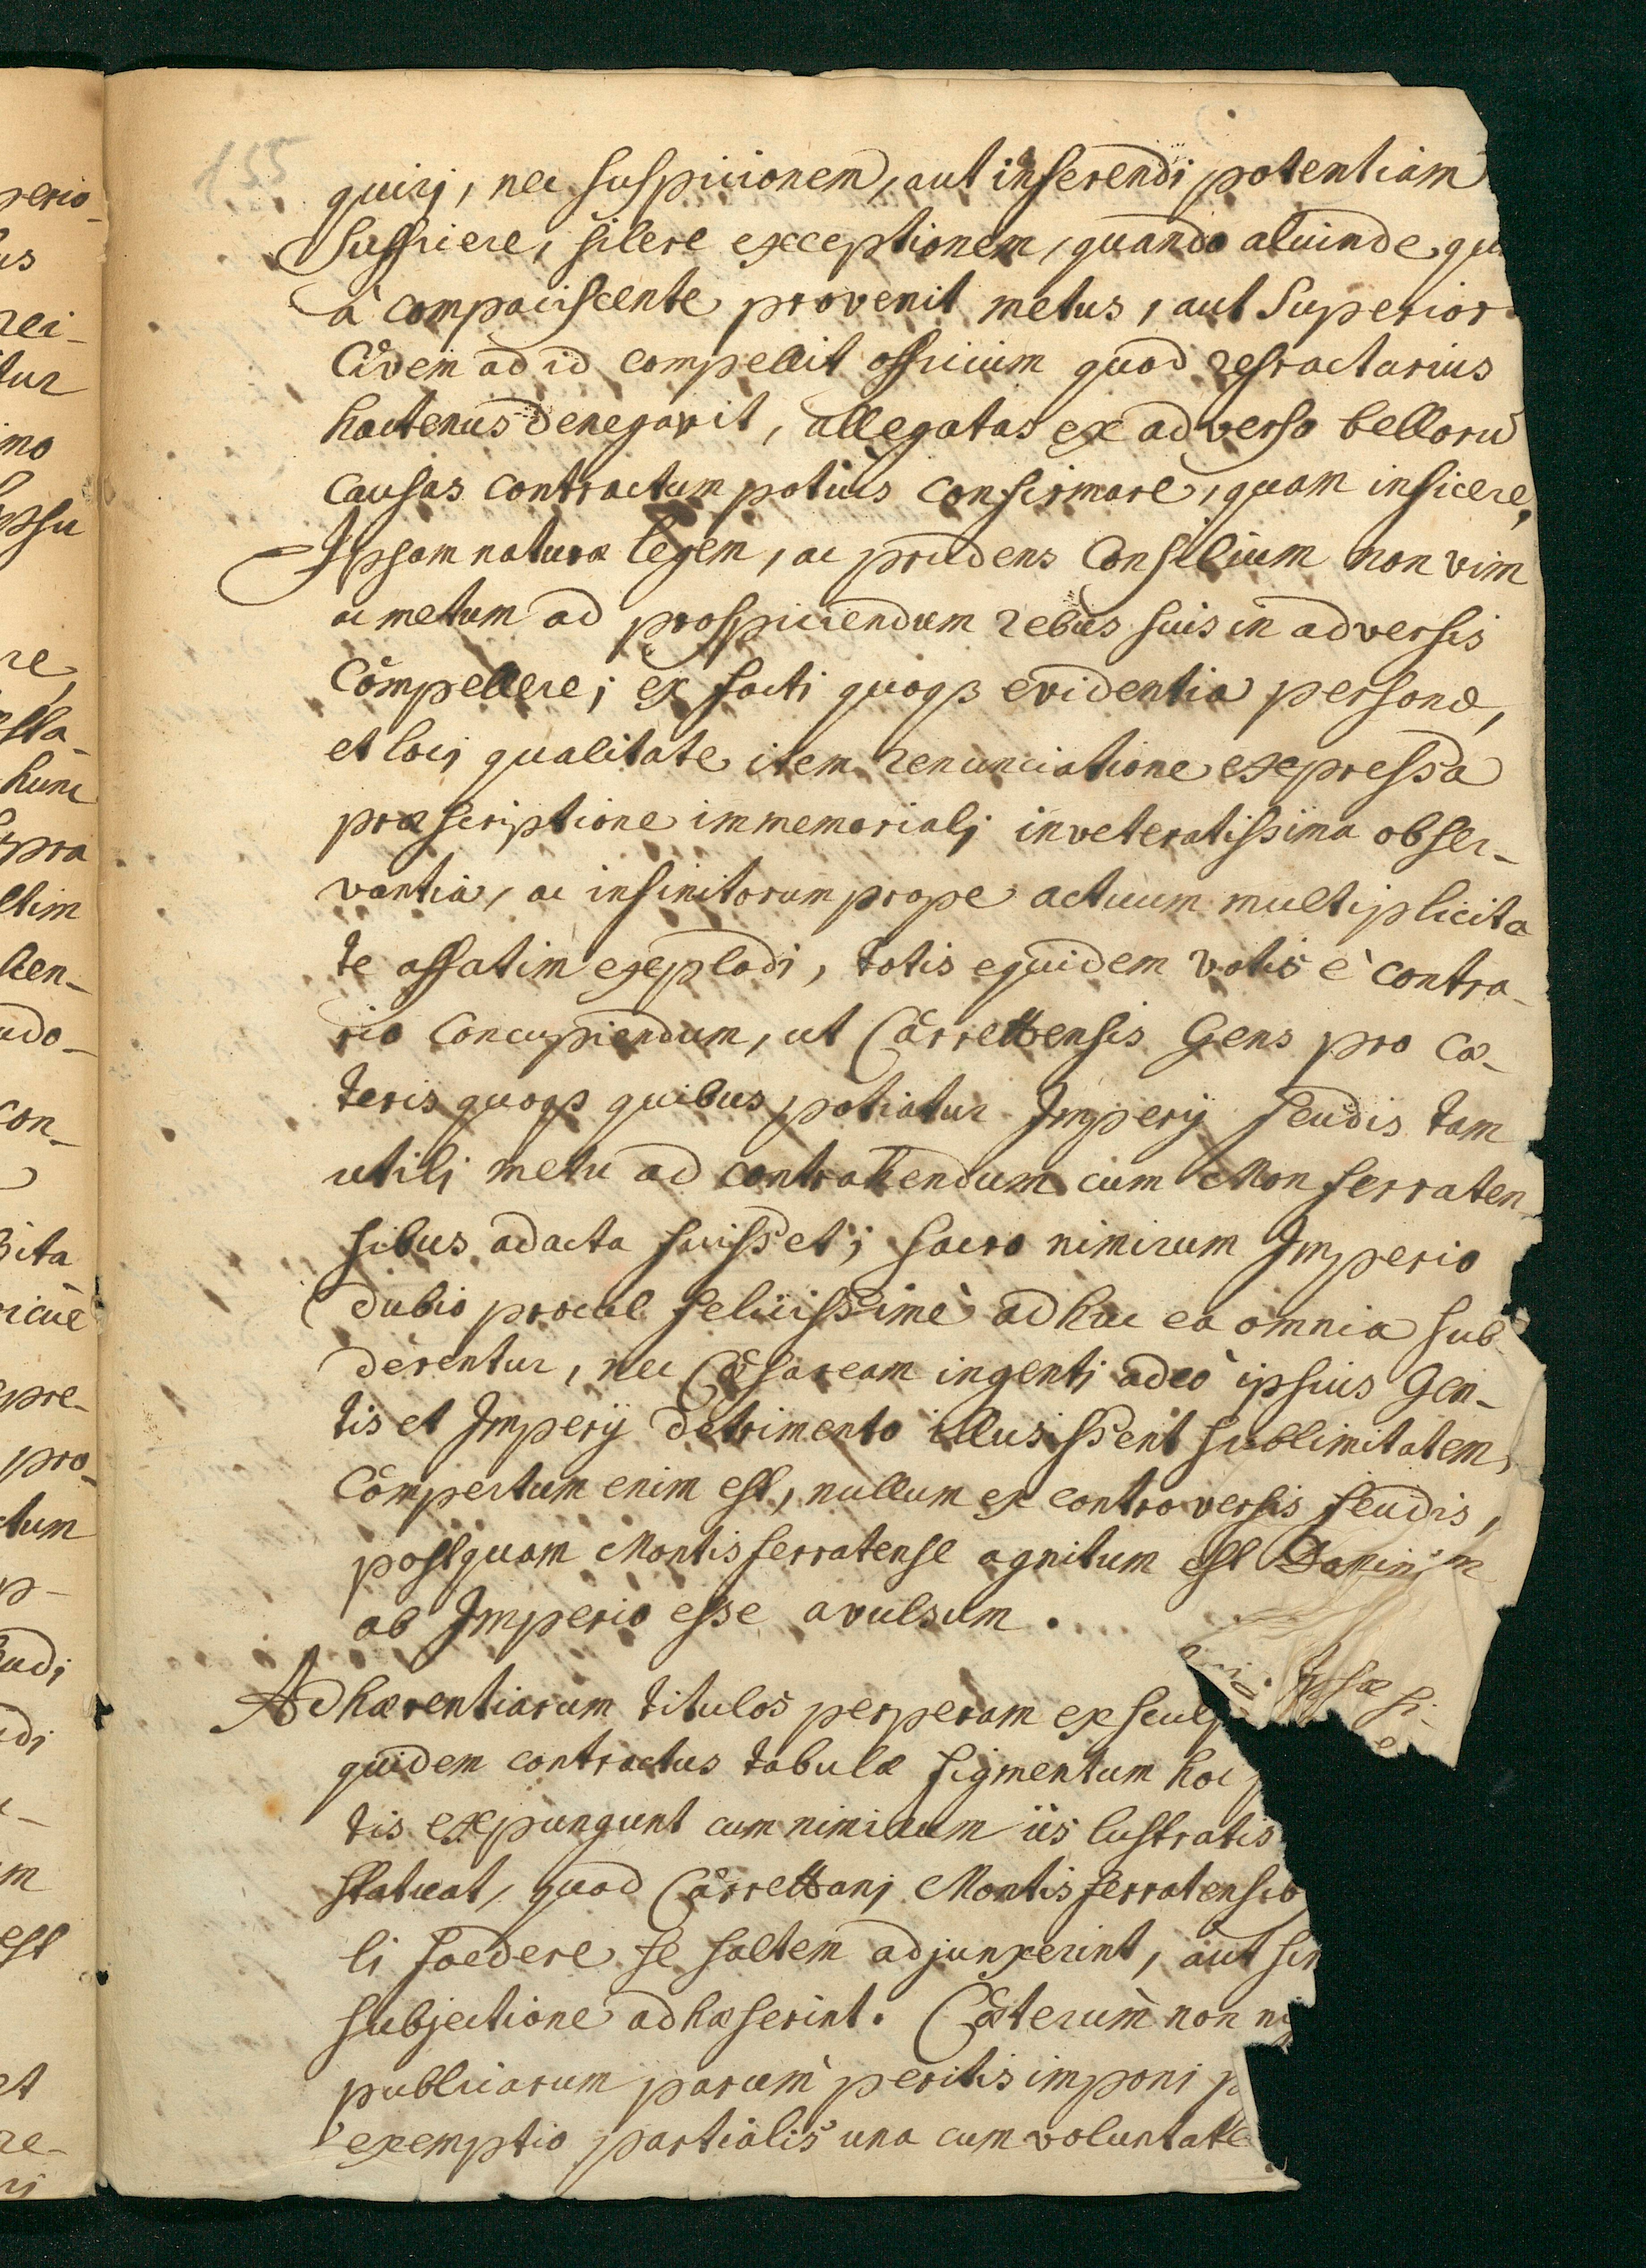 155
quirj, nec suspicionem, aut inferendi potentiam
sufficere, silere exceptionem, quando aliunde, qu
à compaciscente provenit metus, aut Superior
Civem ad id compellit officium quod refractarius
hactenus denegavit, allegatas ex adverso belloru
causas contractum potius confirmare, quam inficere,
Ipsam naturæ legem, ac prudens Consilium non vim
ac metum ad prospiciendum rebus suis in adversis
Compellere; ex facti quoqꝫ evidentia personæ,
et locj qualitate item renunciatione expressa
præscriptione immemorialj inveteratissima obser-
vantia, ac infinitorum prope actuum multiplicita
te affatim explodi, totis equidem votis è contra-
rio concupiendum, ut Carrettensis Gens pro cæ-
teris quoqꝫ quibus potiatur Imperij feudis tam
utilj metu ad contrahendum cum Monferraten
sibus adacta fuisset; sacro nimirum Imperio
dubio procul feliciissimè adhuc ea omnia sub
derentur, nec Cæsaream ingenti adeò ipsius Gen-
tis et Imperij detrimento illusissent sublimitatem,
Compertum enim est, nullum ex controversis feudis,
postquam Montisferratense agnitum est Domin'm
ab Imperio esse avulsum.
Adhærentiarum titulos perperam exsculp Ipsæ si-
quidem contractus tabulæ figmentum hoc
tis expungunt cum nimirum iis lustratis
statuat, quod Carrettanj Montisferratensib
li foedere se saltem adjunxerint, aut sim
subjectione adhæserint. Cæterum non ni
publicarum parum peritis imponi p
exemptio partialis una cum voluntate
perio-
us
rei-
tur
imo
psu
re,
sta-
hunc
pra
ctim
ten-
udo-
con-
bita
ricuè
pre-
pro-
ctum
p-
udi
di
m
est
et
re-